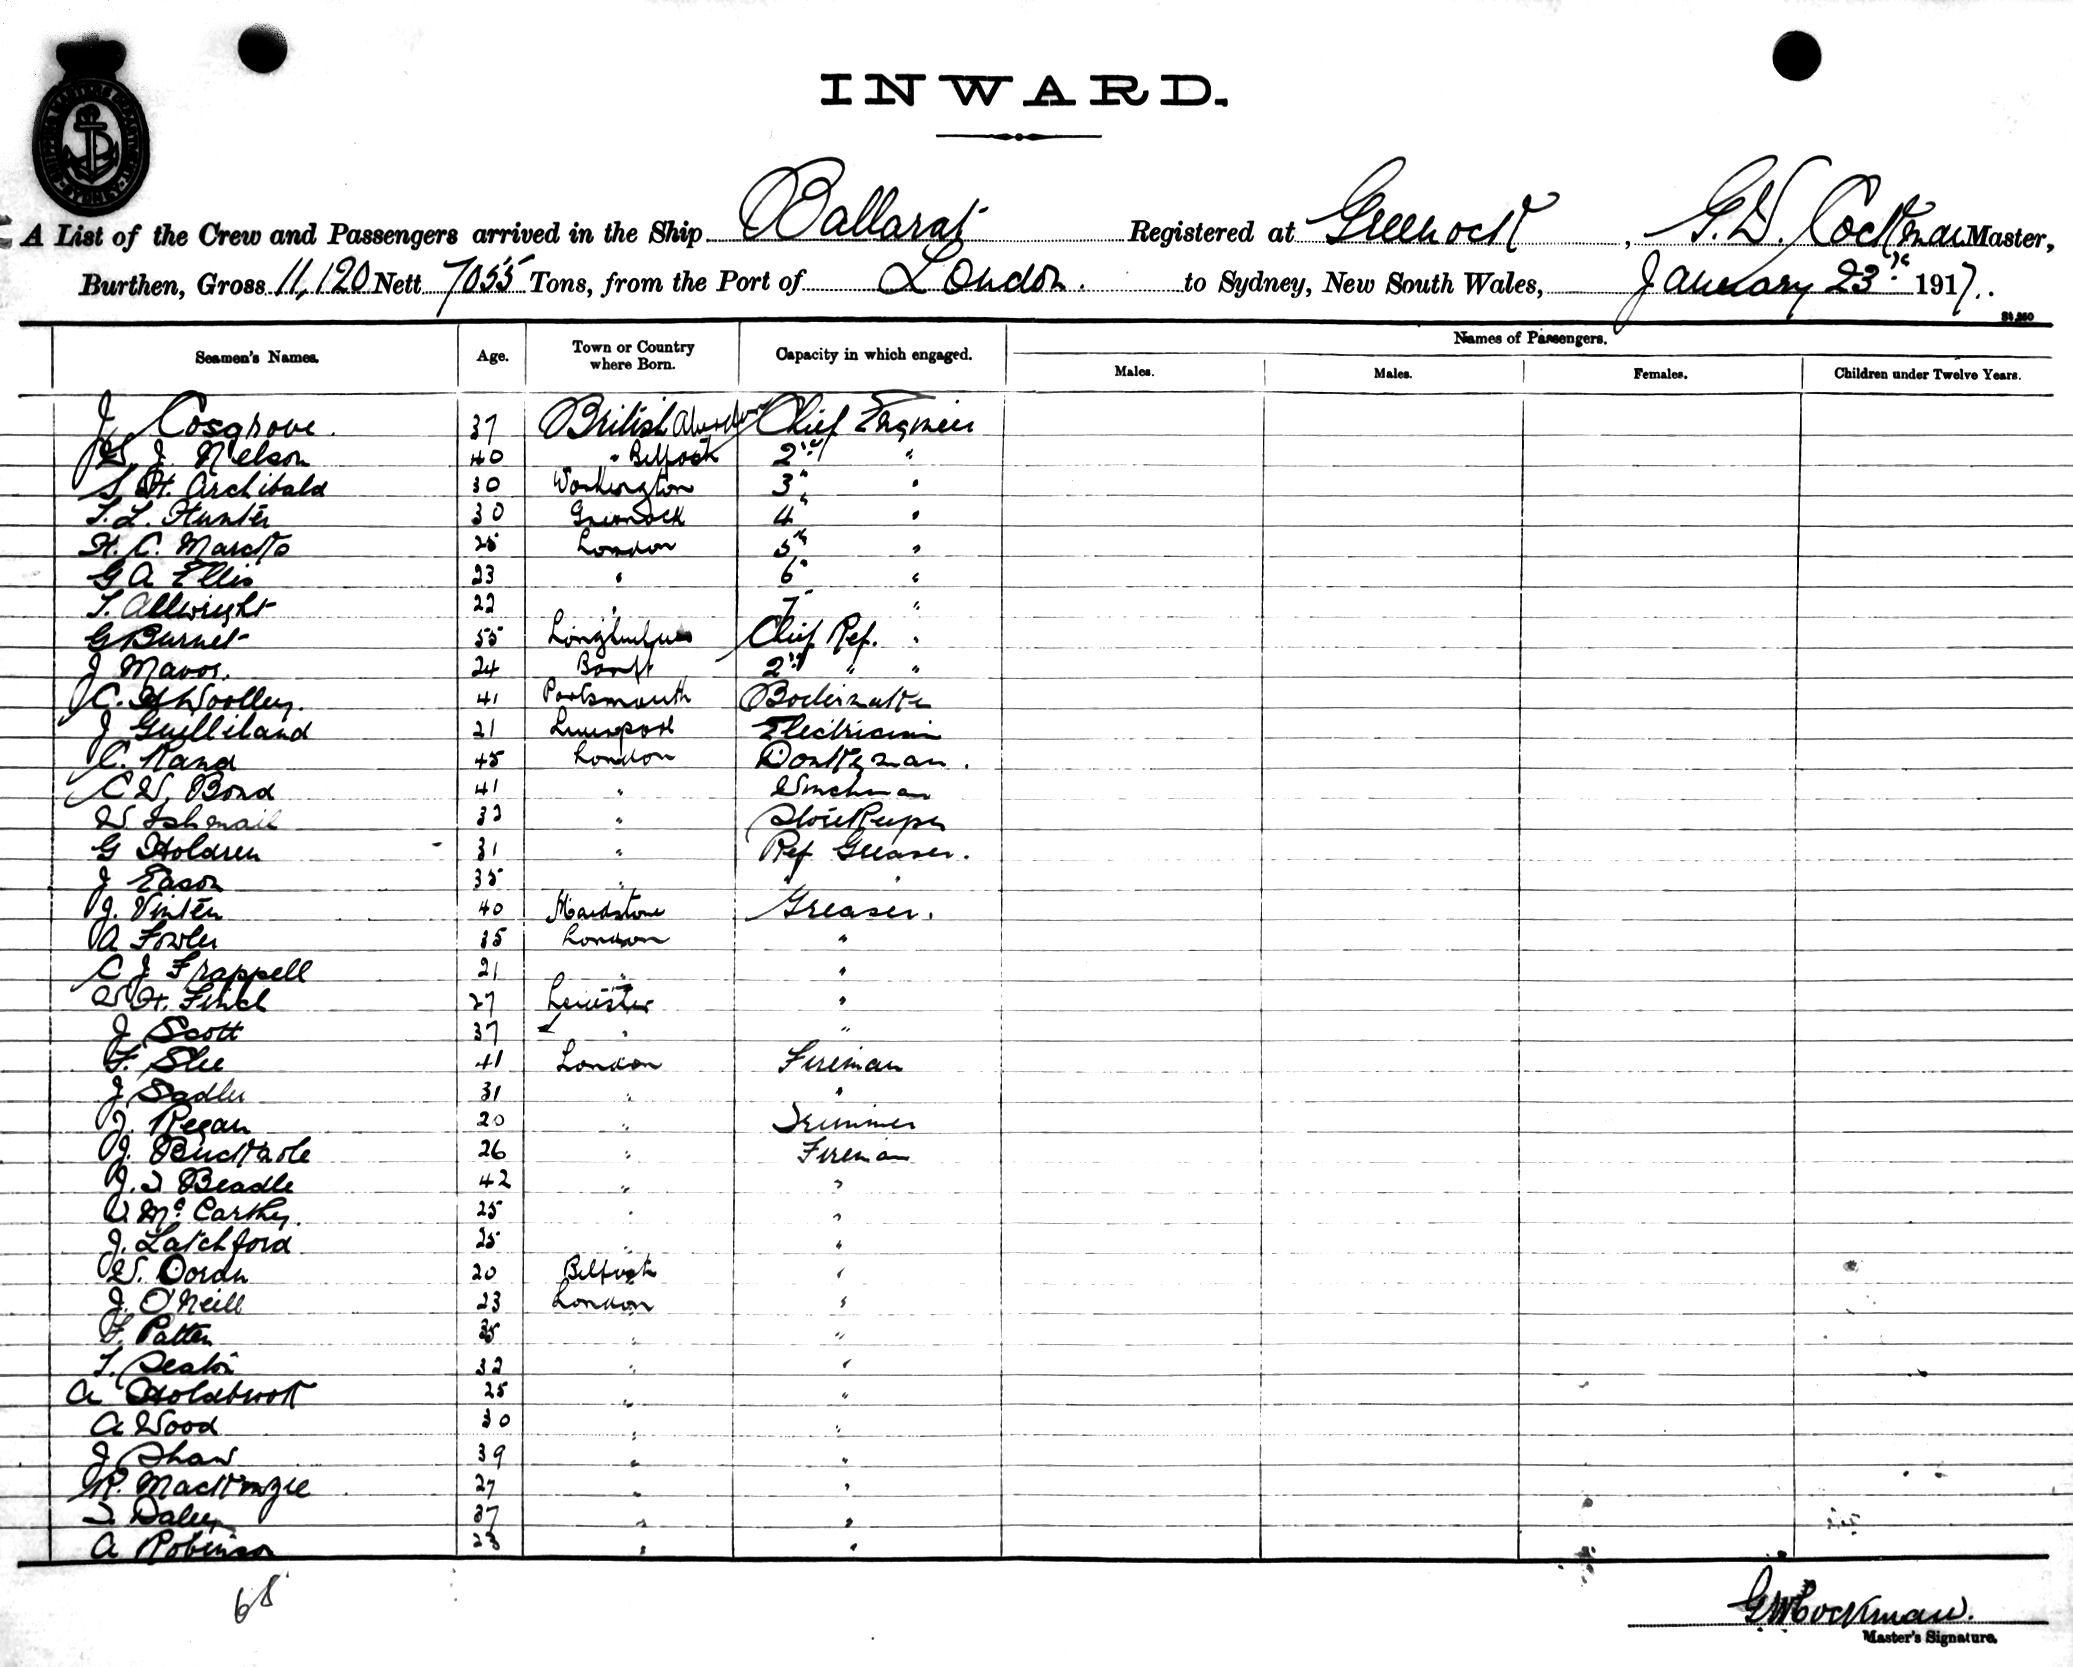 INWARD.
A List of the Crew and Passengers arrived in the Ship Ballarat Registered at Greenock, G.W. Cockman Master,
Burthen, Gross 11,120 Nett 7055 Tons, from the Port of London. to Sydney, New South Wales, January 23rd 1917.
Names of Passengers.
Seamen's Names. Age. Town or Country where Born. Capacity in which engaged. Males. Males. Females. Children under Twelve Years.
J Cosgrove. 37 British Chief Engineer
J. Nelson 40 " Belfast 2nd "
S H. Archibald 30 Workington 3" "
T. L. Hunter 30 Greenock 4" "
H. C. Marcks 25 London 5th "
G A Ellis 23 " 6" "
T. Allwright 22 " 7 "
G Burnet 55 Chief Ref. "
J Mavor. 24 Banff 2nd " "
C. H Woolley. 41 Portsmouth Boilermaker
J Guilliland 21 Liverpool Electrician
C. Rand 45 London Donkeyman.
C W. Bond 41 " Winchman
W. Ishmail 32 " Storekeeper
G Holdren 31 " Ref Greaser.
J Eason 35 " " "
J. Vinten 40 Maidstone Greaser.
A Fowler 35 London "
C J Frappell 21 " "
W H. Finch 27 Leicester "
J Scott 37 " "
F. Slee 41 London Fireman
J Sadler 31 " "
J. Regan 20 " Trimmer
J. Bucktrole 26 " Fireman
J. T Beadle 42 " "
McCarthy. 25 " "
J. Latchford 25 " "
W. Doran 20 Belfast "
J. O'Neill 23 London "
F. Patten 35 " "
T. Seaton 32 " "
A Holdbrook 25 " "
A Wood 30 " "
J Shaw 39 " "
R. MacKenzie 27 " "
T Daley 37 " "
A Robinson 23 " "
68
G W Cockman.
Master's Signature.